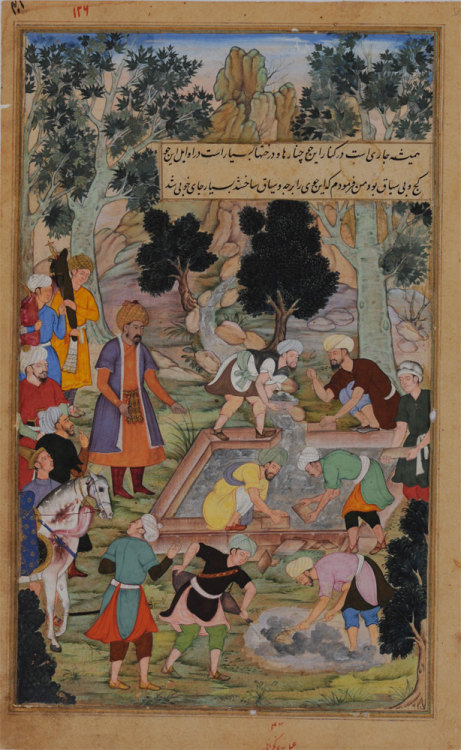 ۱۲۶
همیشه جاری است در کنار این جوی چنارها و درختها بسیار است در اوایل جوی
کج و بی سیاق بود من فرمودم که این جوی را برجه و سیاق ساختند بسیار جای خوبی شد